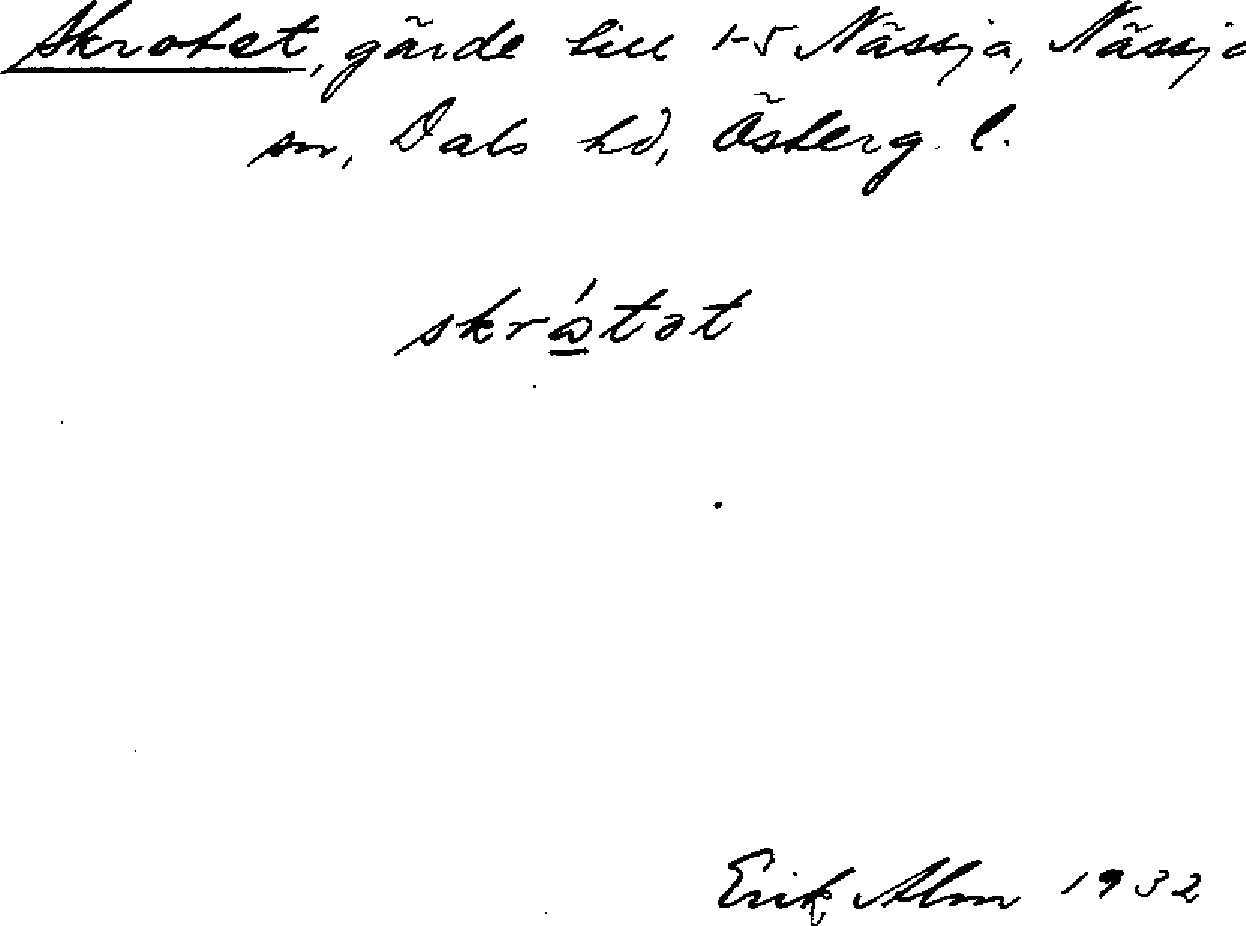 Skrotet, gärde till 1-5 Nässja, Nässja
sn, Dals hd, Österg. l.
skrótət
Erik Alm 1932